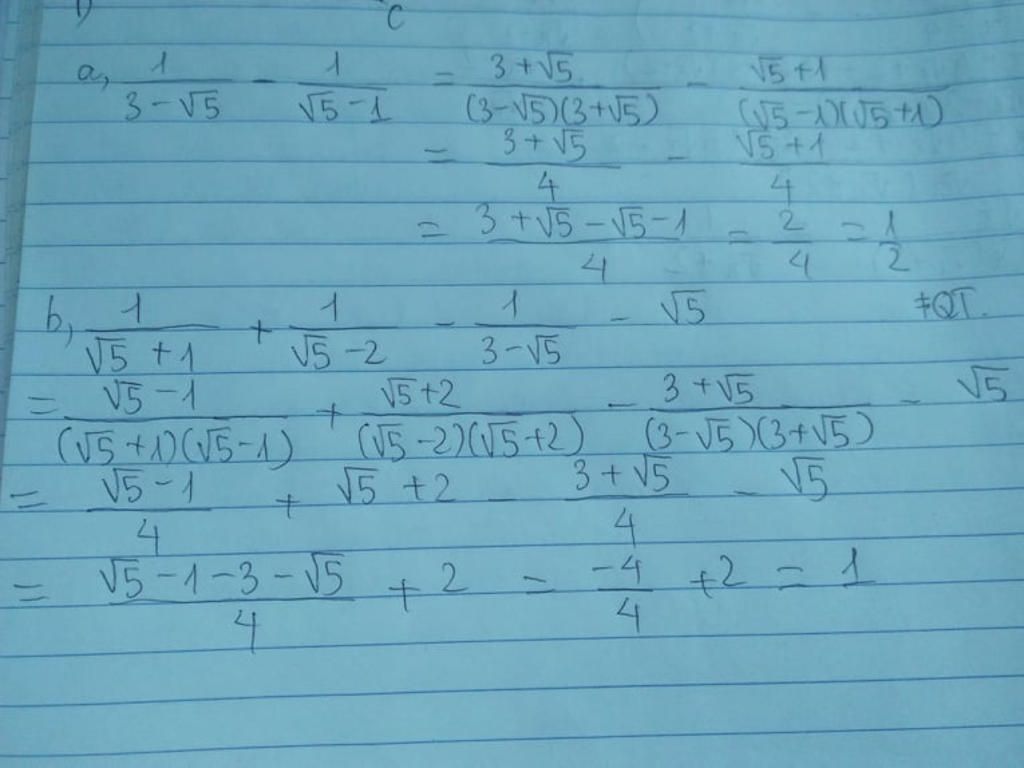 c
a, \frac{1}{3-√5} - \frac{1}{√5-1} = \frac{3+√5}{(3-√5)(3+√5)} - \frac{√5+1}{(√5-1)(√5+1)}
= \frac{3+√5}{4} - \frac{√5+1}{4}
= \frac{3+√5-√5-1}{4} = \frac{2}{4} = \frac{1}{2}
b, \frac{1}{√5+1} + \frac{1}{√5-2} - \frac{1}{3-√5} - √5 ‡QT.
= \frac{√5-1}{(√5+1)(√5-1)} + \frac{√5+2}{(√5-2)(√5+2)} - \frac{3+√5}{(3-√5)(3+√5)} - √5
= \frac{√5-1}{4} + √5+2 - \frac{3+√5}{4} - √5
= \frac{√5-1-3-√5}{4} + 2 = \frac{-4}{4} +2 = 1